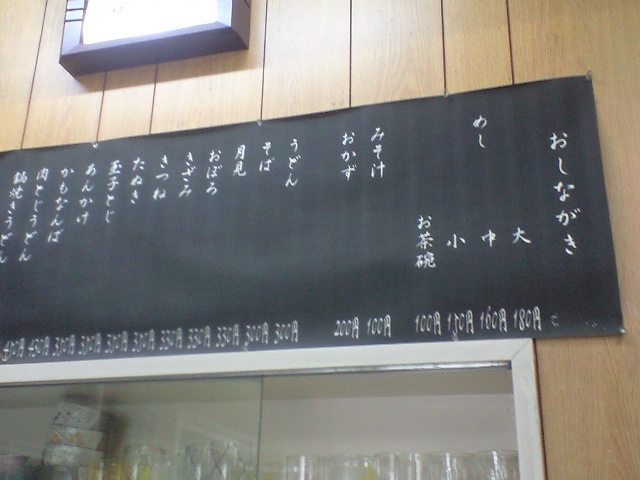 おしながき
めし 大 180円
中 160円
小 150円
お茶碗 100円
みそ汁 100円
おかず 200円
うどん 300円
そば 300円
月見 350円
おぼろ 350円
きざみ 350円
きつね 350円
たぬき 350円
玉子とじ 350円
あんかけ 350円
かもなんば
肉とじうどん 450円
鍋焼きうどん